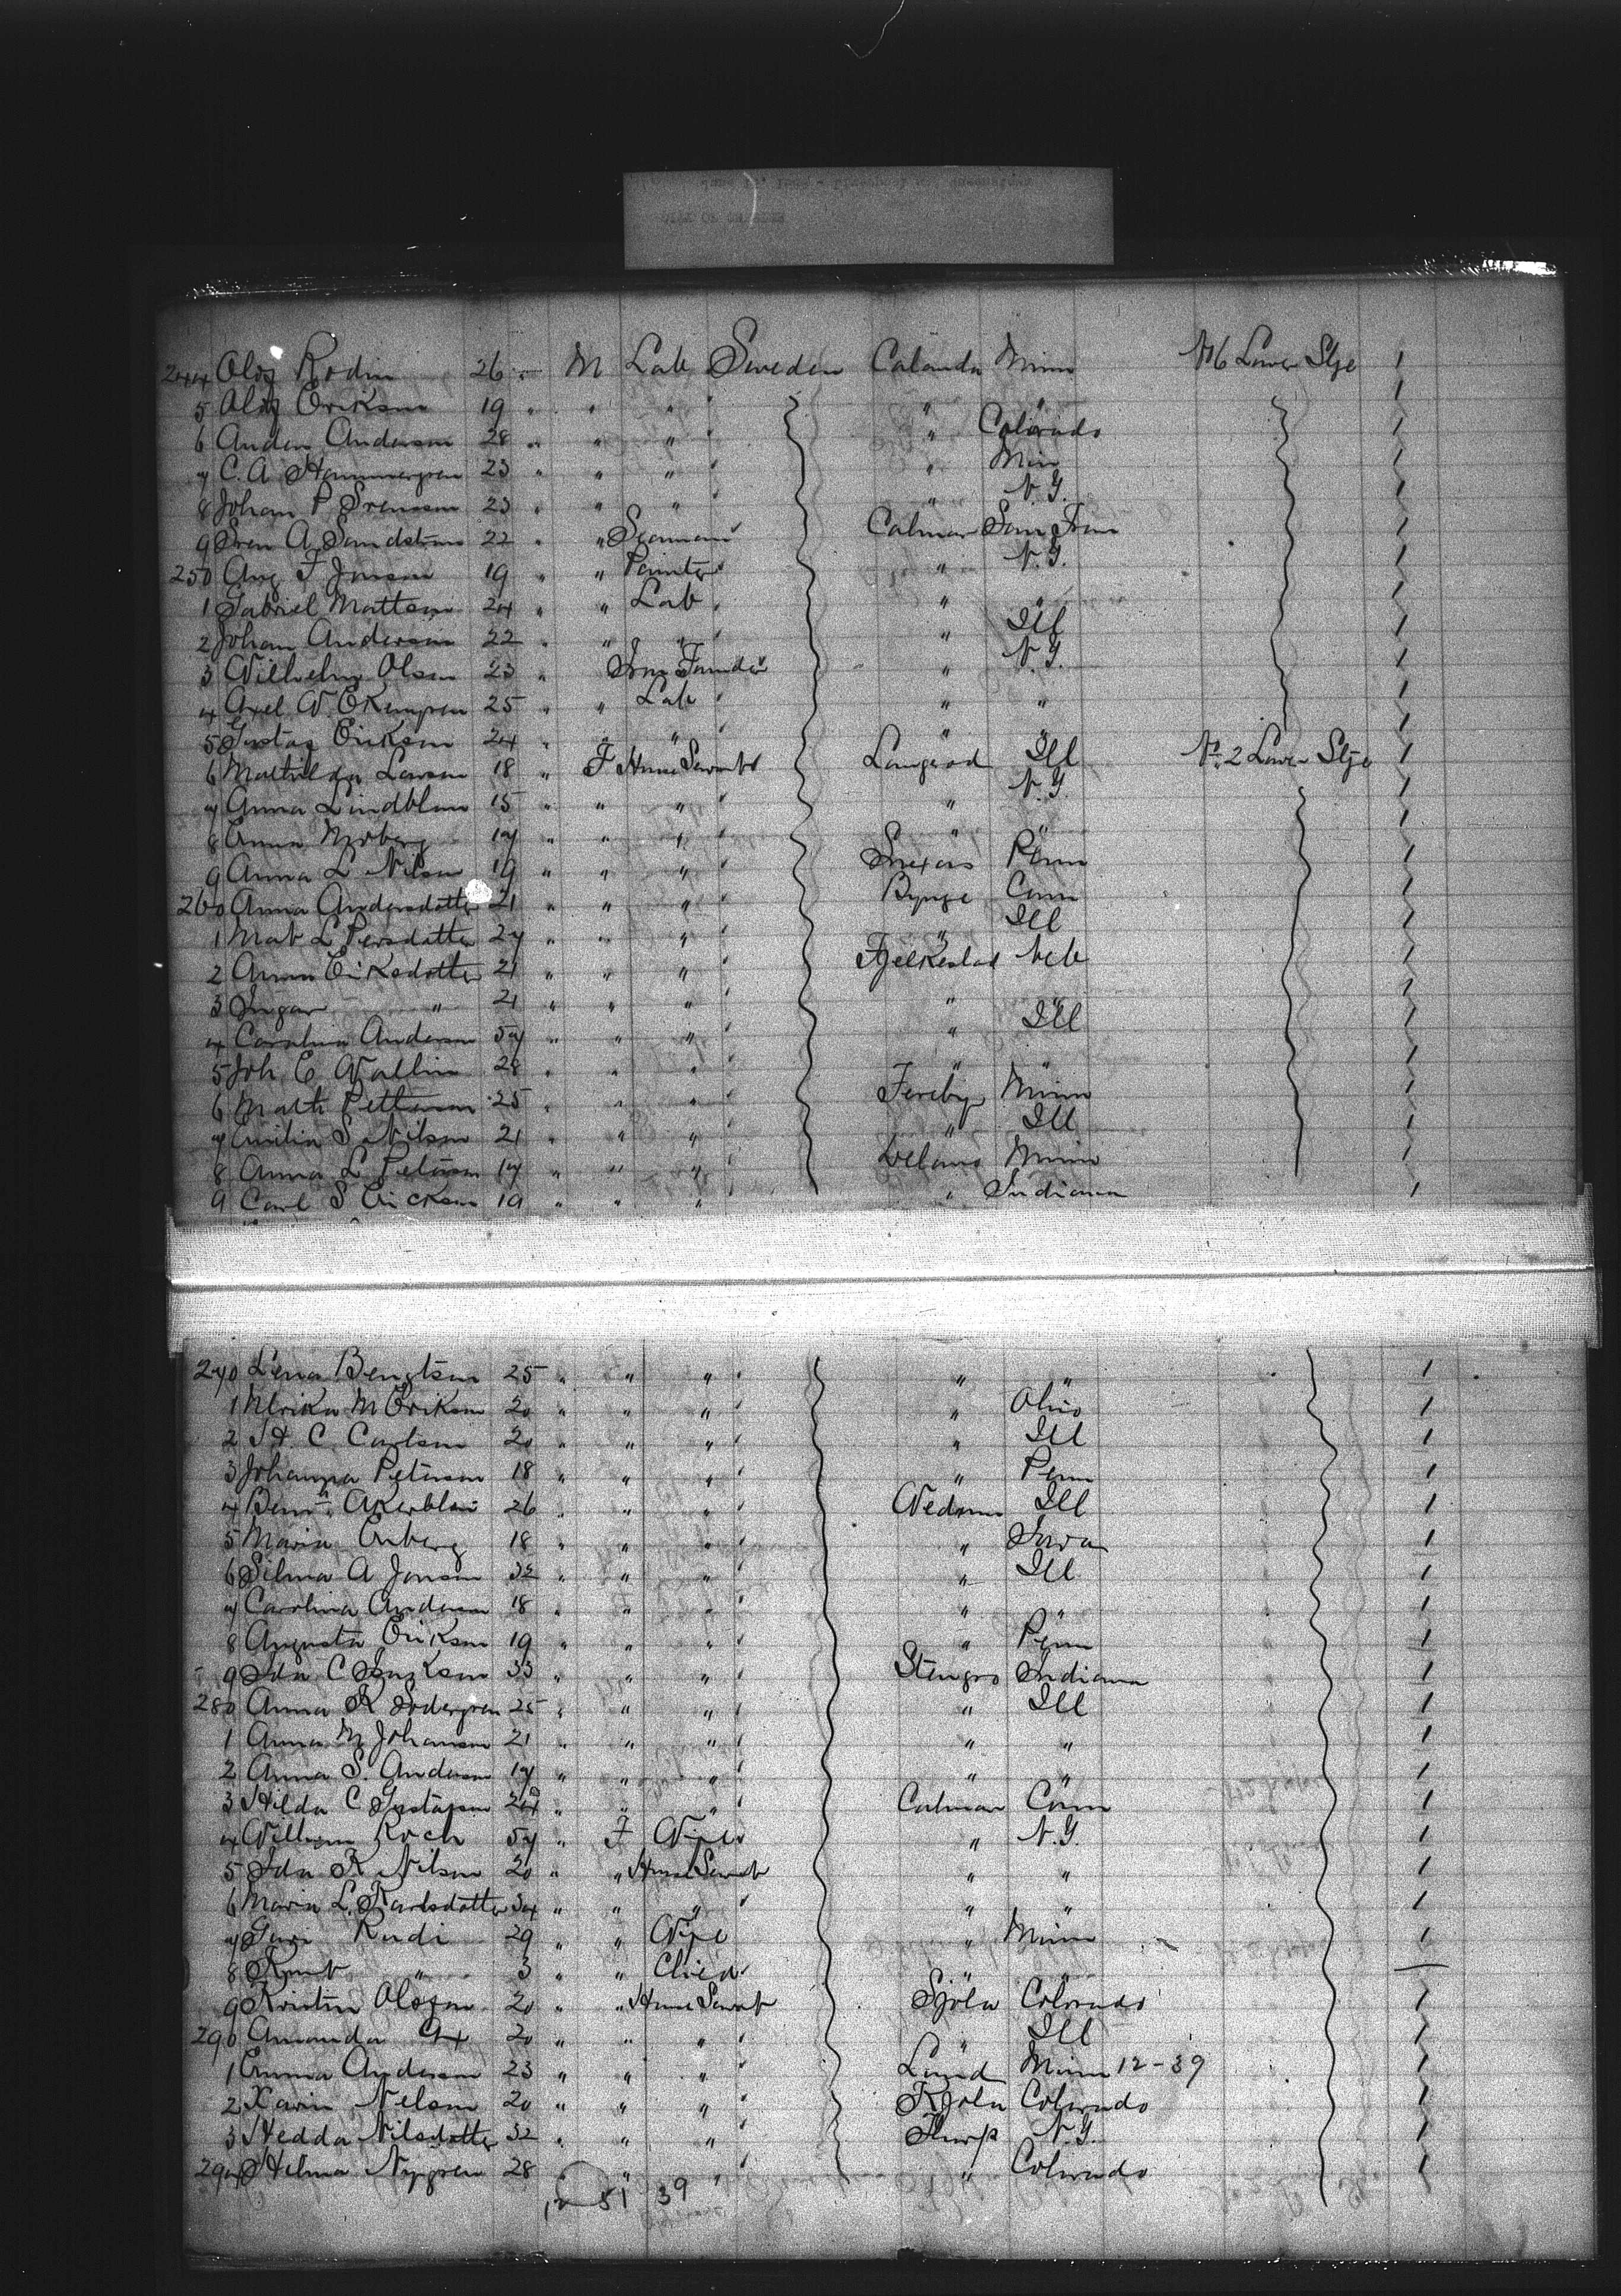 244 Olof Rodin 26 " M Lab Sweden Calanda Minn No 6 Lower Stge 1
5 Olof Erikson 19 " " " " " 1
6 Anders Anderson 28 " " " " Colorado 1
7 C. A. Hammergren 23 " " " " Min 1
8 Johan P Svenson 23 " " " " N.Y. 1
9 Sven A. Sandstrom 22 " " Seaman Calmar San Fran 1
250 Aug F Jonson 19 " " Painter " N.Y. 1
1 Gabriel Mattson 24 " " Lab " " 1
2 Johan Anderson 22 " " " " Ill 1
3 Wilhelm Olson 23 " Iron Founder " N.Y. 1
4 Axel W. Ekengren 25 " " Lab " " 1
5 Gustaf Erikson 24 " " " " " 1
6 Mathilda Larson 18 " F House Servant Langeod Ill No 2 Lower Stge 1
7 Anna Lindblom 15 " " " " N.Y. 1
8 Anna Moberg 17 " " " " " 1
9 Anna L Nilson 19 " " " Penn 1
260 Anna Andersdotter 21 " " " Bynge Conn 1
1 Mat L Persdotter 27 " " " " Ill 1
2 Anna Eriksdotter 21 " " " Fjelkestad Neb 1
3 Ingar " 21 " " " " " 1
4 Carolina Anderson 57 " " " " Ill 1
5 Joh E Wallin 28 " " " " " 1
6 Math Petterson 25 " " " Fereby Minn 1
7 Emilia S Nilson 21 " " " " Ill 1
8 Anna L Peterson 17 " " " Minn 1
9 Carl S Erickson 19 " " " " Indiana 1
270 Lena Bengtson 25 " " " " " 1
1 Ulrika M Erikson 20 " " " " Ohio 1
2 H. C. Carlson 20 " " " " Ill 1
3 Johanna Peterson 18 " " " " Penn 1
4 Akerblom 26 " " " Ill 1
5 Maria Enberg 18 " " " " Iowa 1
6 Selma A Jonson 32 " " " " Ill 1
7 Carolina Anderson 18 " " " " " 1
8 Augusta Erikson 19 " " " " Penn 1
9 Ida C Isaakson 33 " " " Stengro Indiana 1
280 Anna K Sodergren 25 " " " " Ill 1
1 Anna M Johanson 21 " " " " " 1
2 Anna S. Anderson 17 " " " " " 1
3 Hilda C Gustafson 24 " " " Calmar Conn 1
4 Koch 57 " F Wife " N.Y. 1
5 Ida K Nilson 20 " " House Servant " " 1
6 Maria L. Karlsdotter 34 " " " " " 1
7 Rudi 29 " " Wife " Minn 1
8 Knut " 3 " " Child " "
9 Kristin Olofson 20 " " House Servant Sjöla Colorado 1
290 Amanda 20 " " " " Ill 1
1 Emma Anderson 23 " " " Lund Minn 12-39 1
2 Karin Nelson 20 " " " Kjola Colorado 1
3 Hedda Nilsdotter 32 " " " N.Y. 1
294 Helma Nygren 28 " " " " Colorado 1
12 51 39